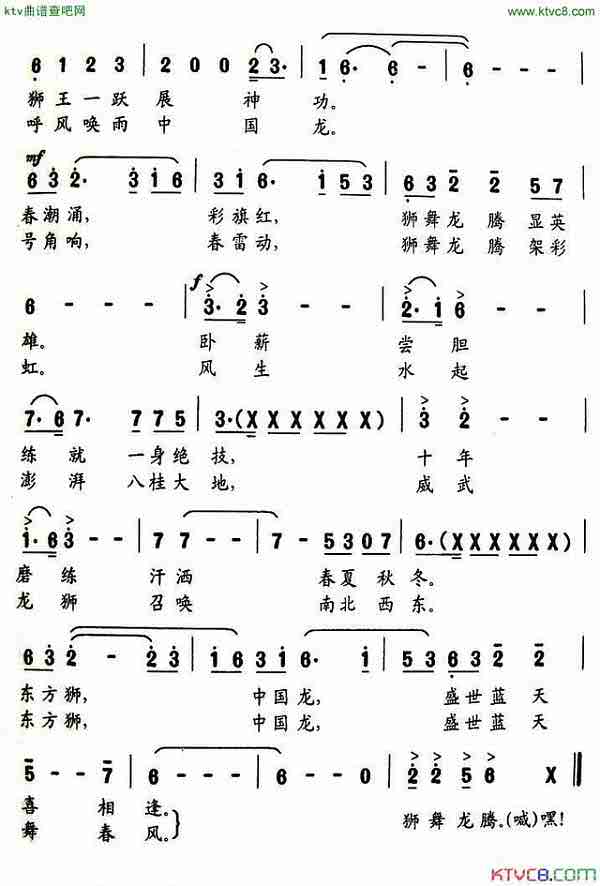 ktv曲谱查吧网 www.ktvc8.com
6 1 2 3 | 2 0 0 2 3· | 1 6· - 6 | 6 - - - |
狮王一跃展 神 功。
呼风唤雨中 国 龙。
mf
6 3 2· 3 1 6 | 3 1 6· 1 5 3 | 6 3 2 2 5 7 |
春潮涌, 彩旗红, 狮舞龙腾显英
号角响, 春雷动, 狮舞龙腾架彩
f
6 - - - | 3· 2 3 - - | 2· 1 6 - - |
雄。 卧薪 尝胆
虹。 风生 水起
7· 6 7· 7 7 5 | 3·(X X X X X X) | 3 2 - - |
练就一身绝技, 十年
澎湃八桂大地, 威武
1· 6 3 - - | 7 7 - - | 7 - 5 3 0 7 | 6·(X X X X X X) |
磨练 汗洒 春夏秋冬。
龙狮 召唤 南北西东。
6 3 2 - 2 3 | 1 6 3 1 6· 1 | 5 3 6 3 2 2 |
东方狮, 中国龙, 盛世蓝天
东方狮, 中国龙, 盛世蓝天
5 - - 7 | 6 - - - | 6 - - 0 | 2 2 5 6 X ‖
喜相逢。
舞春风。} 狮舞龙腾。(喊)嘿!
KTVC8.COM